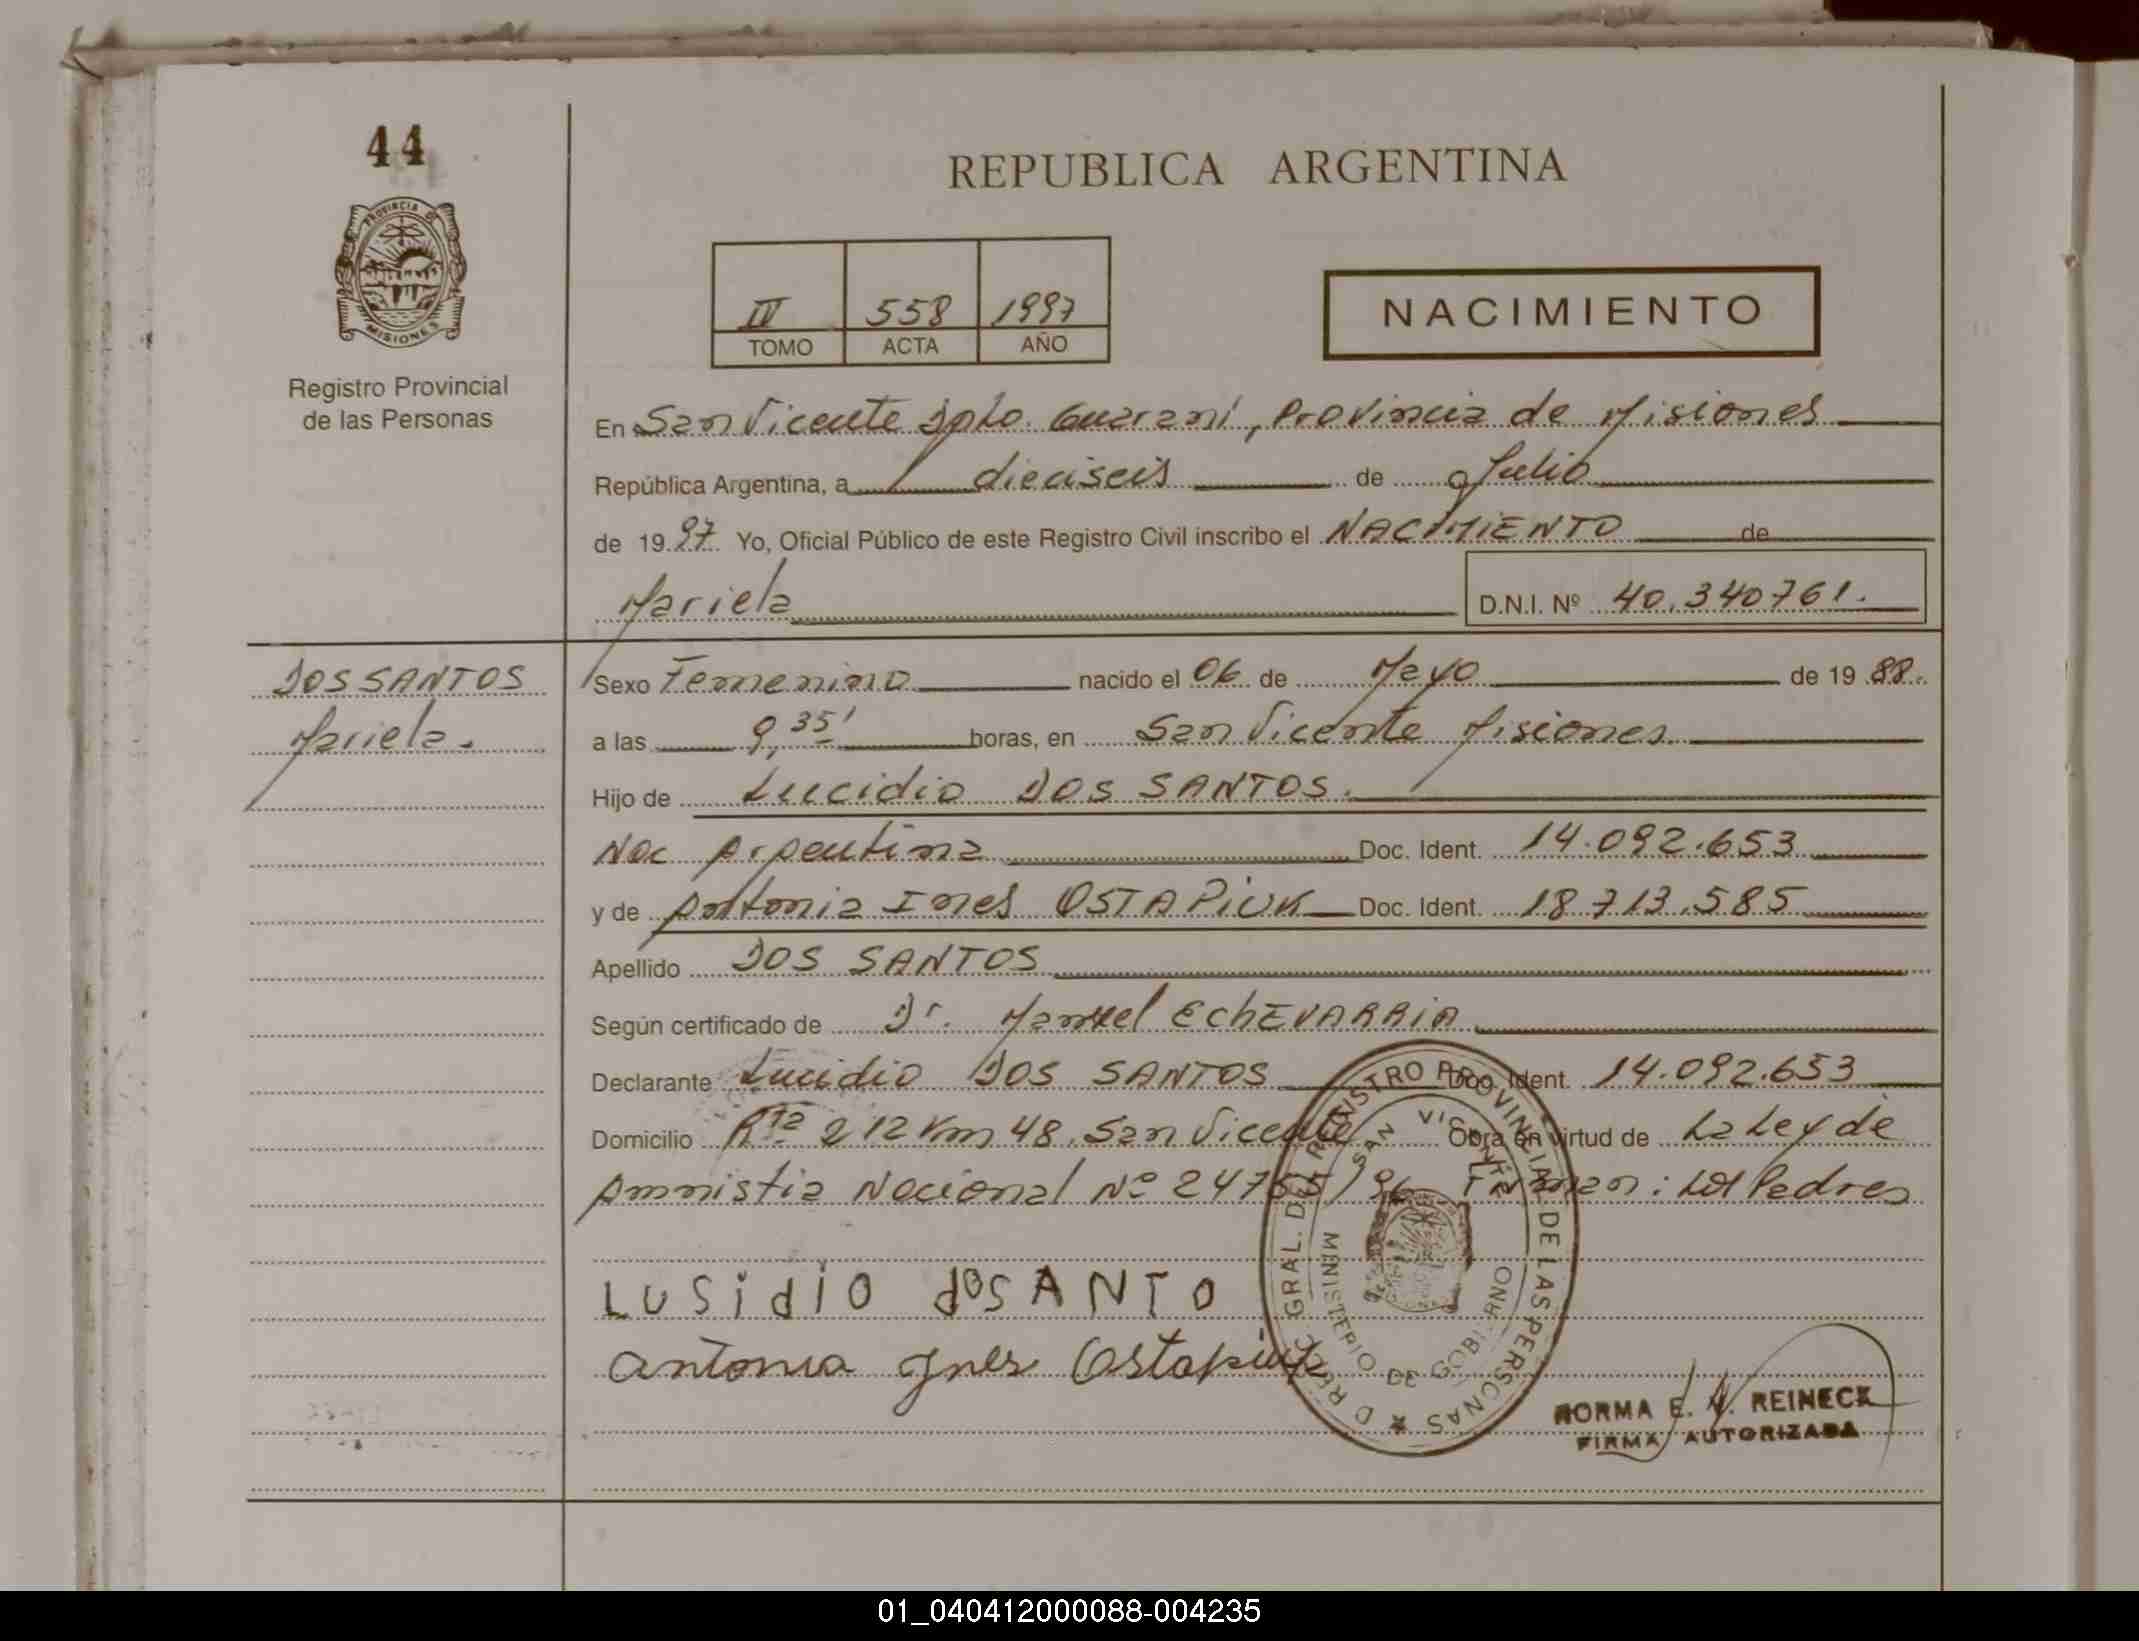 44
REPUBLICA ARGENTINA
PROVINCIA DE
MISIONES
IV 558 1997
TOMO ACTA AÑO
NACIMIENTO
Registro Provincial
de las Personas
En San Vicente Dpto. Guaraní, Provincia de Misiones
República Argentina, a dieciseis de Julio
de 1997 Yo, Oficial Público de este Registro Civil inscribo el NACIMIENTO de
Mariela D.N.I. Nº 40.340761.
DOS SANTOS
Mariela.
Sexo Femenino nacido el 06 de Mayo de 1988.
a las 9,35' horas, en San Vicente Misiones
Hijo de Lucidio DOS SANTOS.
Nac Argentina Doc. Ident. 14.092.653
y de Antonia Ines OSTAPiUK Doc. Ident. 18.713.585
Apellido DOS SANTOS
Según certificado de Dr. Manuel EchEVARRIA
Declarante Lucidio DOS SANTOS Doc. Ident. 14.092.653
Domicilio Rta 212 Km 48. San Vicente Obra en virtud de La Ley de
Amnistia Nacional Nº 24755/96 Firman: Los Padres
LUSidiO dOSANTO
Antonia Ynes Ostapiuk
DIREC. GRAL. DEL REGISTRO PROVINCIAL DE LAS PERSONAS
SAN VICENTE
MINISTERIO DE GOBIERNO
NORMA E. N. REINECK
FIRMA AUTORIZADA
01_040412000088-004235